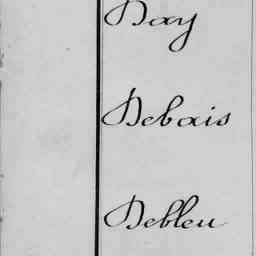 Day
Debais
Debleu